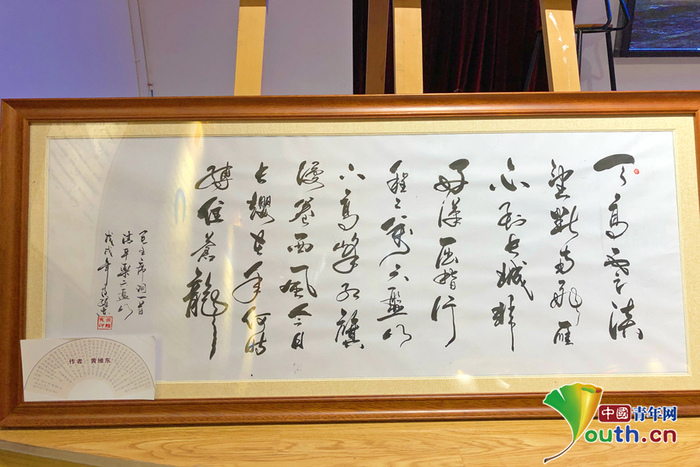 天高雲淡
望斷南飛雁
不到长城非
好漢屈指行
程二萬六盤山
上高峰红旗
漫卷西風今日
长缨在手何時
縛住蒼龍
毛主席词一首
清平樂六盘山
戊戌年
作者：
中國青年网
youth.cn